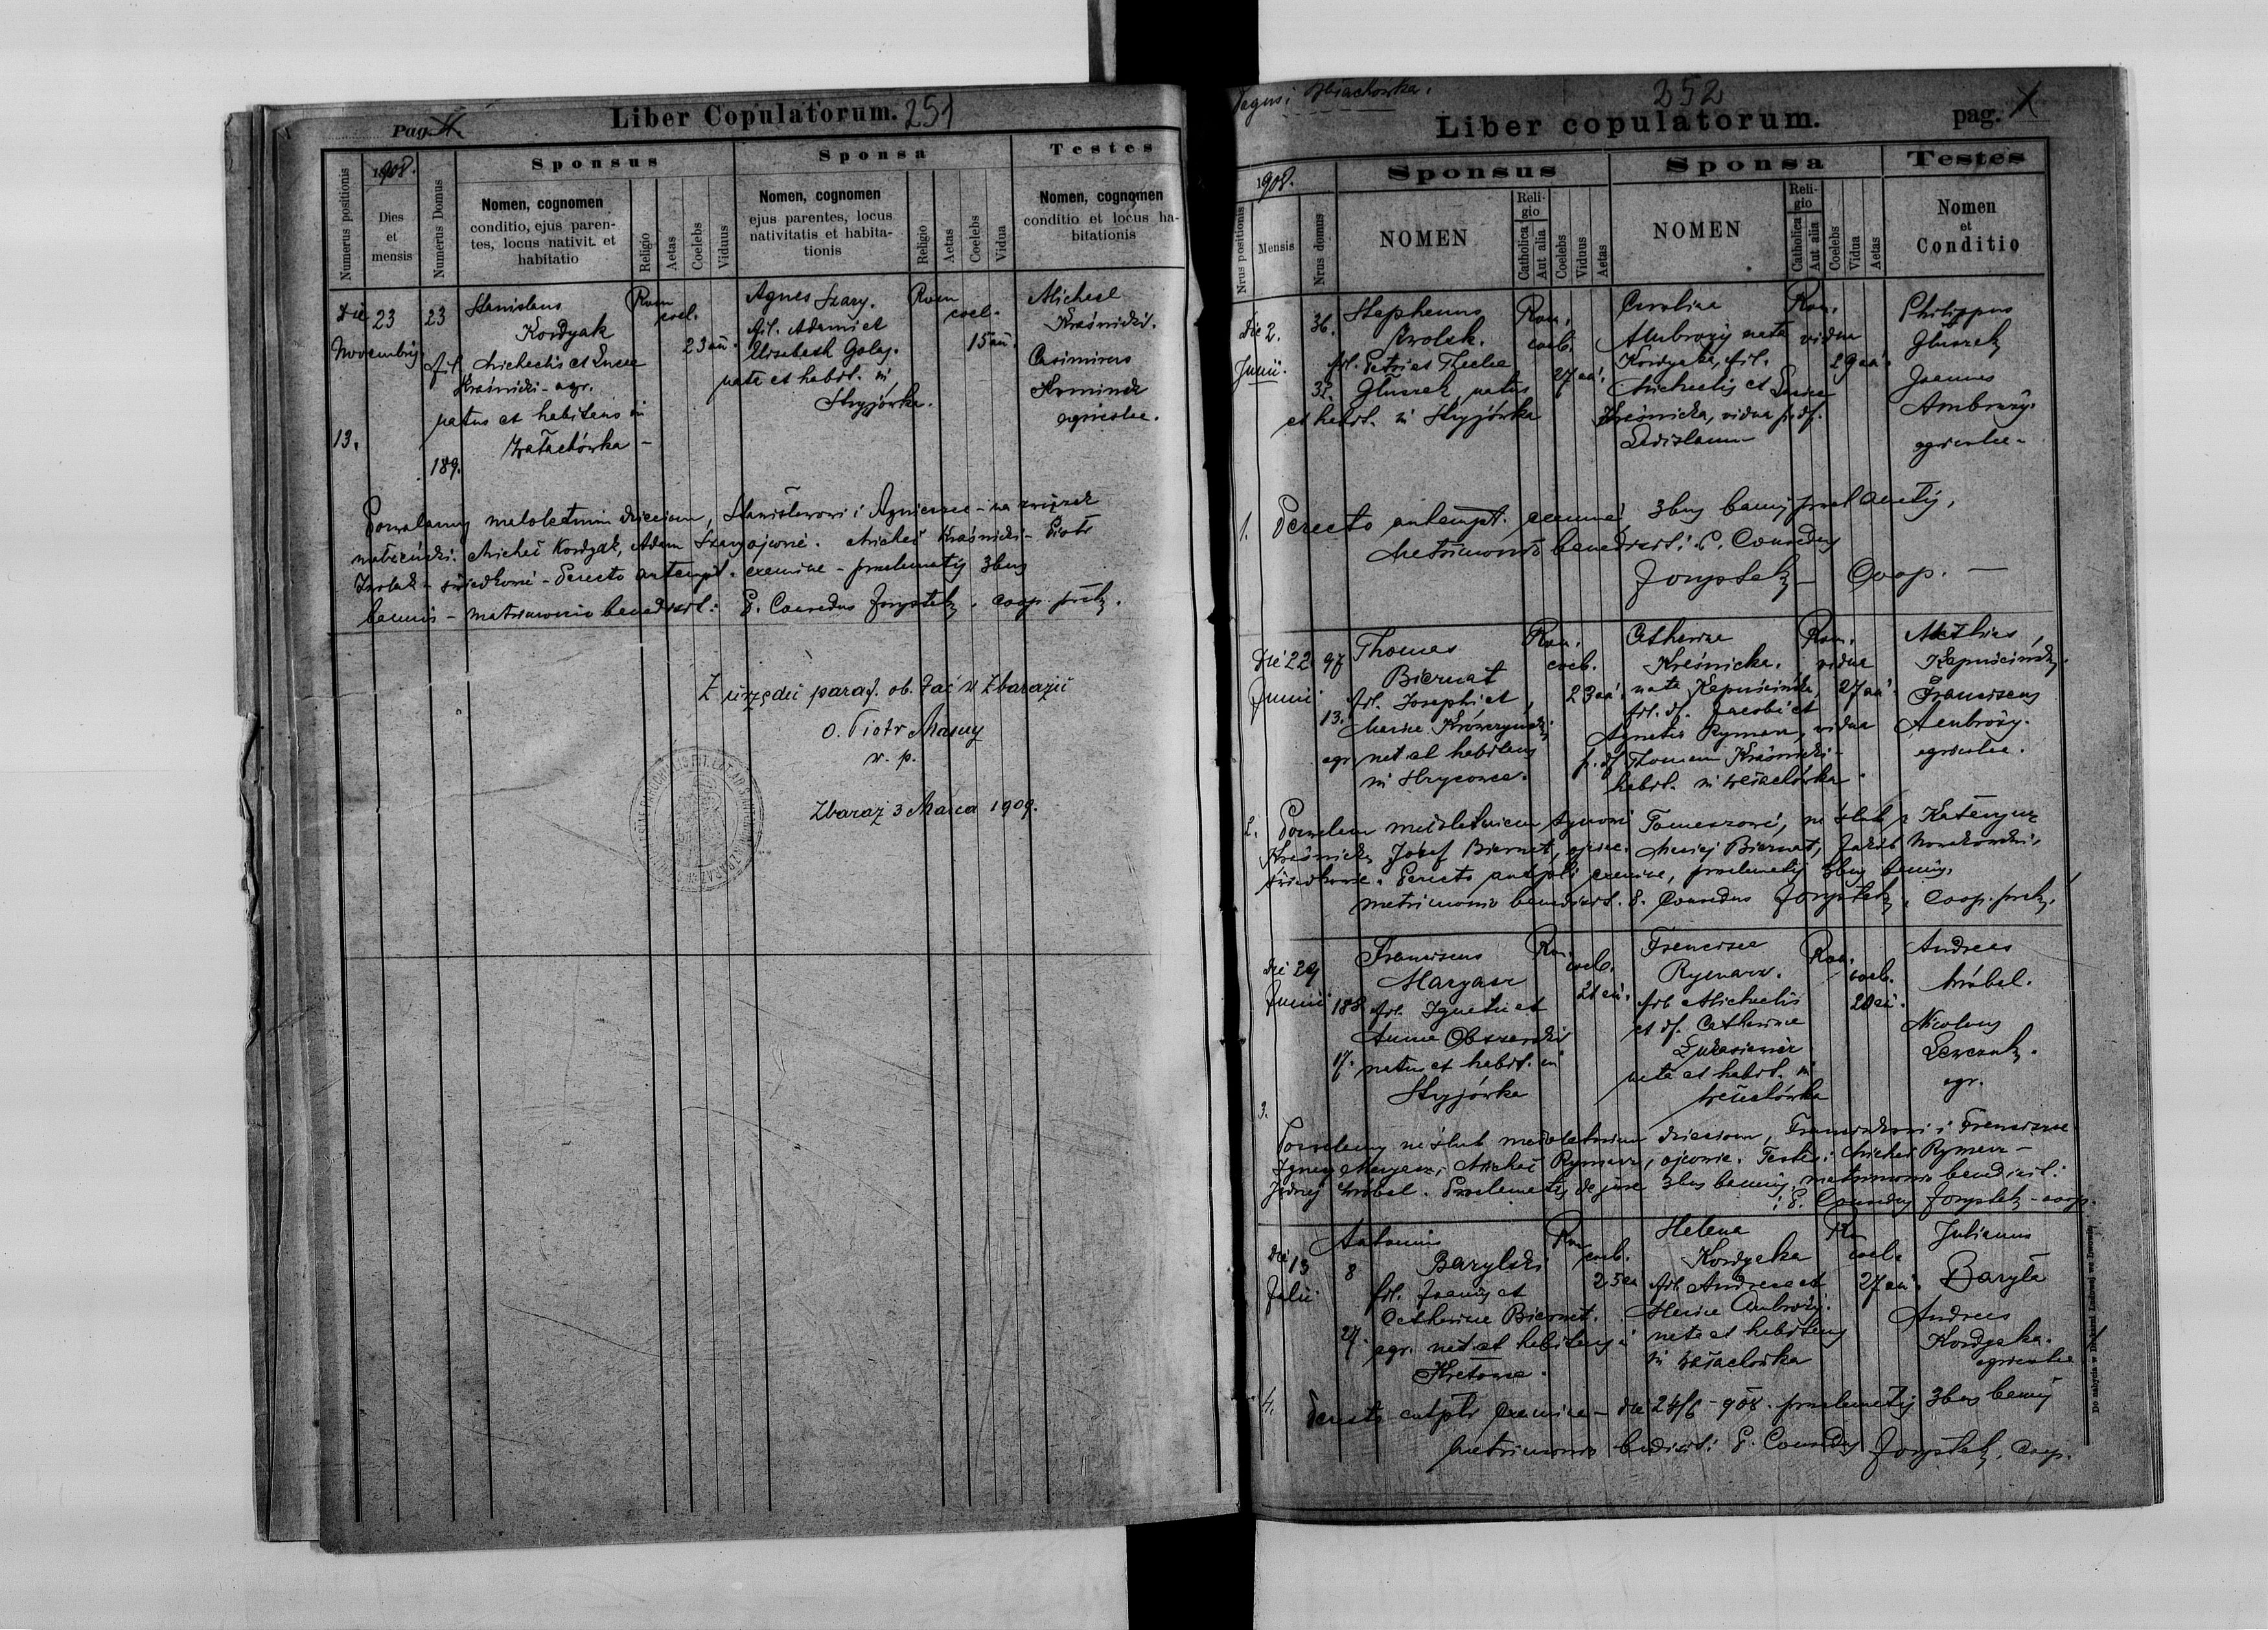 Pag.
Liber Copulatorum. 251
1908.
Numerus positionis
Dies
et
mensis
Numerus Domus
Sponsus
Nomen, cognomen
conditio, ejus paren-
tes, locus nativit. et
habitatio
Religio
Aetas
Coelebs
Viduus
Sponsa
Nomen, cognomen
ejus parentes, locus
nativitatis et habita-
tionis
Religio
Aetas
Coelebs
Vidua
Testes
Nomen, cognomen
conditio et locus ha-
bitationis
Die 23
Novembris
13.
23
189.
Stanislaus
Kordyak
fil. Michaelis et Luciae
Kraśnicki - agr.
natus et habitans in
Wałachówka -
Rom
coel.
23 an.
Agnes Szary.
fil. Adami et
Elisabeth Galas.
nata et habit. in
Stryjówka.
Rom
coel.
15 an.
Michael
Kraśnicki.
Casimirus
Kominek
agricolae.
Pozwalamy małoletnim dzieciom, Stanisławowi i Agnieszce - na związek
małżeński. Michał Kordyak, Adam Szary ojcowie. Michał Kraśnicki - Piotr
Wolak - świadkowie - Peracto antempt. examine - proclamatis 3bus
bannis - matrimonio benedixit: P. Conradus coop. pretz.
Z urzędu paraf. ob. łać w Zbarażu
o. Piotr Masny
w. p.
Zbaraż 3 Marca 1909.
Pagus: Wałachówka.
252
Liber copulatorum.
pag.
1908.
Nrus positionis
Mensis
Nrus domus
Sponsus
NOMEN
Reli-
gio
Catholica
Aut alia
Coelebs
Viduus
Aetas
Sponsa
NOMEN
Reli-
gio
Catholica
Aut alia
Coelebs
Vidua
Aetas
Testes
Nomen
et
Conditio
Die 2.
Junii.
36.
32.
Stephanus
Wolak.
fil. Petri et Theclae
Głuszek, natus
et habit. in Stryjówka
Rom.
coeb.
27 an.
Carolina
Ambroży nata
Kordyaka, fil.
Michaelis et Luciae
Kraśnicka, vidua p. df.
Ladislaum
Rom.
vidua
29 an.
Philippus
Głuszek
Joannes
Ambroży.
agricolae -
1. Peracto antempt. examine, 3bus bannis proclamatis,
Matrimonio benedixit: P. Conradus
Coop. -
Die 22
Junii
97
13.
Thomas
Biernat
fil. Josephi et
Mariae
agr. nat. et habitans
in Hrycowce.
Rom.
coeb.
23 an.
Catharina
Kraśnicka.
nata Kapuścińska,
fil. df. Jacobi et
Agnetis Rymarz, vidua
p. df. Thomam Kraśnicki -
habit. in Wałachówka
Rom.
vidua
27 an.
Mathias
Kapuściński.
Franciscus
Ambroży.
agricolae.
2. Pozwalam małoletniemu synowi Tomaszowi, na ślub z Katarzyną
Kraśnicką Józef Biernat, ojciec. Maciej Biernat, Jakób Nowakowski,
świadkowie. Peracto antpti examine, proclamatis 3bus bannis,
matrimonio benedixit. P. Conradus coop. pretz.
Die 29
Junii
188
17.
Franciscus
Maryasz
fil. Ignatii et
Annae Obszarski
natus et habit. in
Stryjówka
Rom.
coeb.
21 an.
Francisca
Rymarz.
fil. Michaelis
et df. Catharinae
Łukasiewicz
nata et habit. in
Wałachówka
Rom.
coeb.
20 an.
Andreas
Wróbel.
Nicolaus
agr.
3. Pozwalamy na ślub małoletnim dzieciom, Franciszkowi i Franciszce
Ignacy Maryasz, Michał Rymarz, ojcowie. Testes: Michał Rymarz -
Jędrzej Wróbel. Proclamatis de jure 3bus bannis, matrimonio benedixit:
P. Conradus - coop.
Die 13
Julii
8
24.
Antonius
Barylski
fil. Joannis et
Catharinae Biernat.
agr. nat. et habitans in
Kretowce.
Rom
coeb.
25 an
Helena
Kordyaka
fil. Andreae et
Mariae Ambroży.
nata et habitans
in Wałachówka
Rom
coeb.
27 an.
Julianus
Baryła
Andreas
Kordyaka.
agricolae
4. Peracto antptu examine - die 24/6 - 908. proclamatis 3bus bannis
Matrimonio bndixit: P. Conradus Coop.
Do nabycia w Drukarni Ludowej we Lwowie.